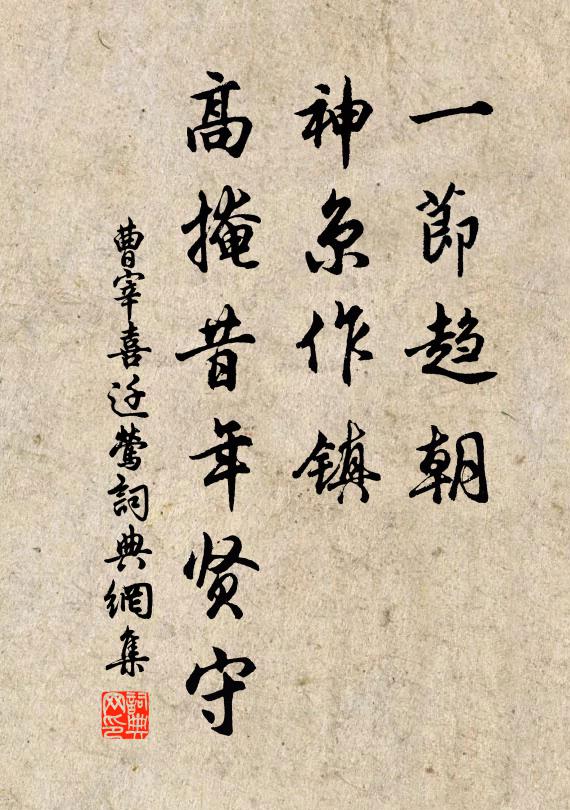 一節趋朝
神京作镇
高掩昔年贤守
曹宰喜迁莺詞典網集
詞典网印